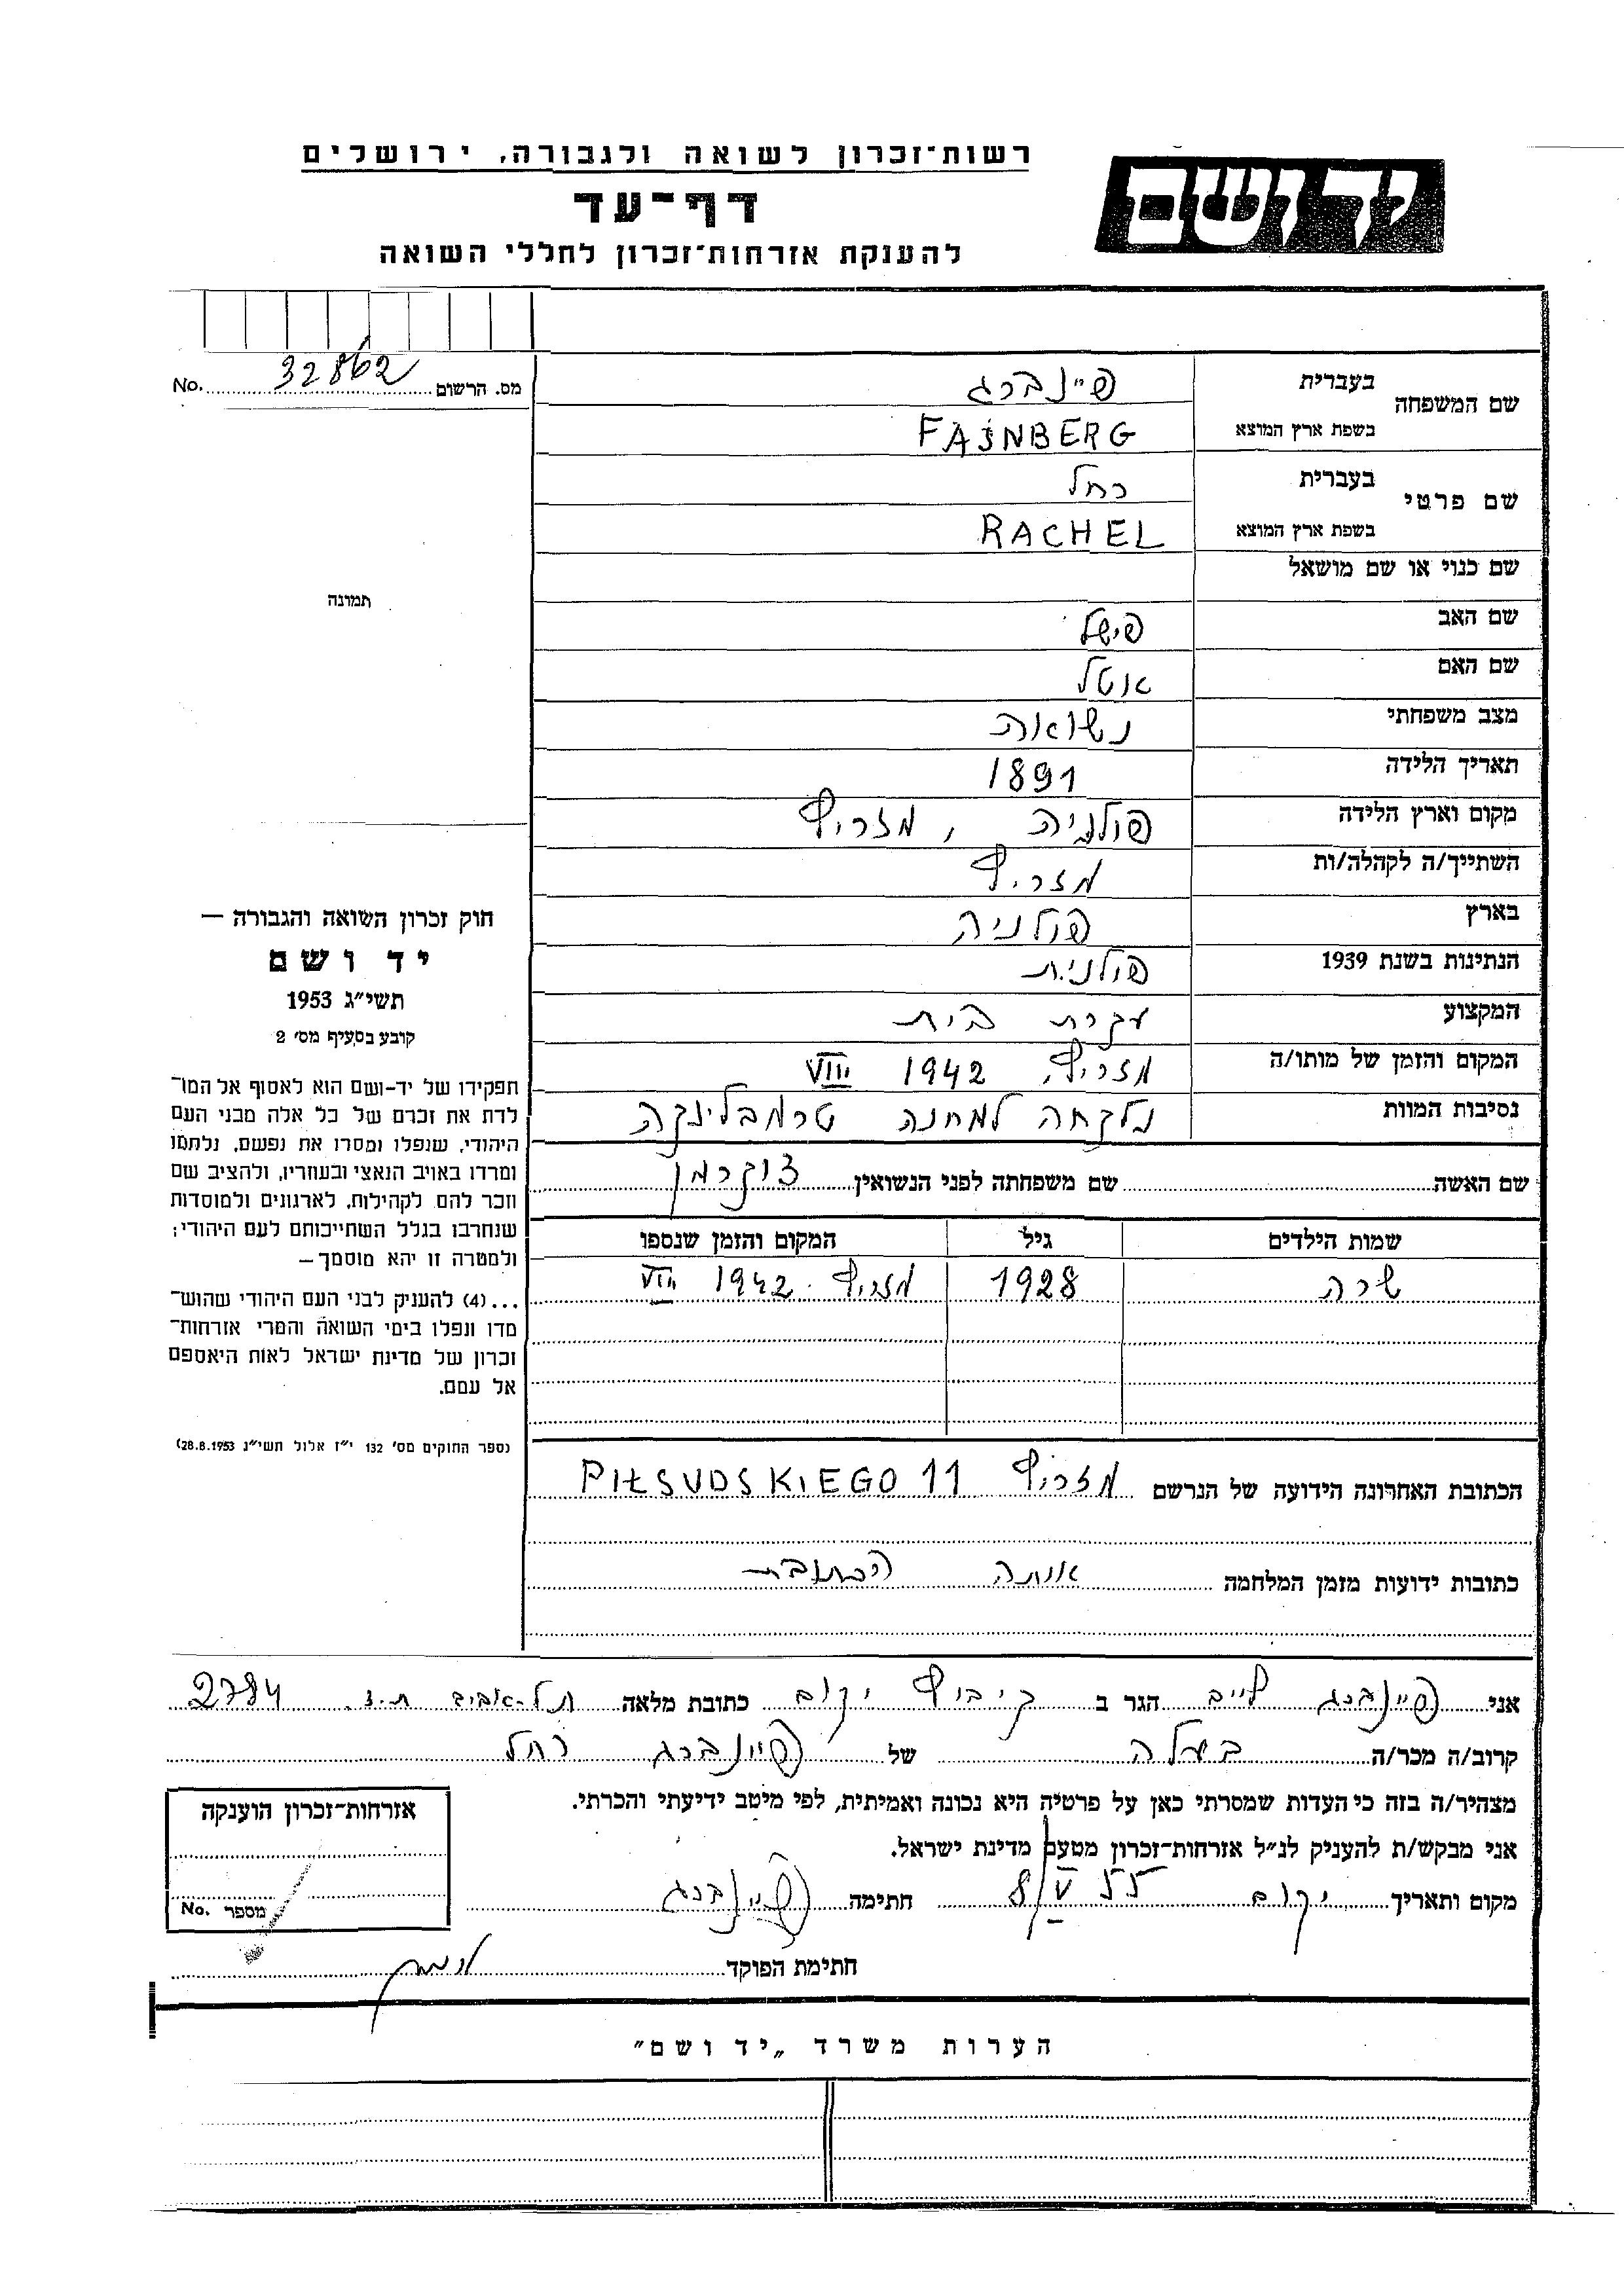 רשות־זכרון לשואה ולגבורה, ירושלים
יד ושם
דף־עד
להענקת אזרחות־זכרון לחללי השואה
מס. הרשום 32862 No.
שם המשפחה בעברית פיינברג
בשפת ארץ המוצא FAJNBERG
שם פרטי בעברית רחל
בשפת ארץ המוצא RACHEL
שם כנוי או שם מושאל
תמונה
שם האב פישל
שם האם אטל
מצב משפחתי נשואה
תאריך הלידה 1891
מקום וארץ הלידה פולניה, מזריץ
השתייך/ה לקהלה/ות מזריץ
בארץ פולניה
הנתינות בשנת 1939 פולנית
המקצוע עקרת בית
המקום והזמן של מותו/ה מזריץ, 1942 VIII
נסיבות המוות נלקחה למחנה טרמבלינקה
שם האשה שם משפחתה לפני הנשואין צוקרמן
שמות הילדים גיל המקום והזמן שנספו
שרה 1928 מזריץ 1942 VIII
חוק זכרון השואה והגבורה —
יד ושם
תשי״ג 1953
קובע בסעיף מס׳ 2
תפקידו של יד-ושם הוא לאסוף אל המו־
לדת את זכרם של כל אלה מבני העם
היהודי, שנפלו ומסרו את נפשם, נלחמו
ומרדו באויב הנאצי ובעוזריו, ולהציב שם
וזכר להם לקהילות, לארגונים ולמוסדות
שנחרבו בגלל השתייכותם לעם היהודי;
ולמטרה זו יהא מוסמך —
...(4) להעניק לבני העם היהודי שהוש־
מדו ונפלו בימי השואה והמרי אזרחות־
זכרון של מדינת ישראל לאות היאספם
אל עמם.
(ספר החוקים מס׳ 132 י״ז אלול תשי״ג 28.8.1953)
הכתובת האחרונה הידועה של הנרשם מזריץ PIŁSUDSKIEGO 11
כתובות ידועות מזמן המלחמה אותה הכתובת
אני פיינברג לייב הגר ב קיבוץ יקום כתובת מלאה תל-אביב ת.ד. 2784
קרוב/ה מכר/ה בעלה של פיינברג רחל
מצהיר/ה בזה כי העדות שמסרתי כאן על פרטיה היא נכונה ואמיתית, לפי מיטב ידיעתי והכרתי.
אני מבקש/ת להעניק לנ״ל אזרחות־זכרון מטעם מדינת ישראל.
מקום ותאריך יקום 8/V 55 חתימה פיינברג
אזרחות־זכרון הוענקה
מספר No.
חתימת הפוקד
הערות משרד „יד ושם״